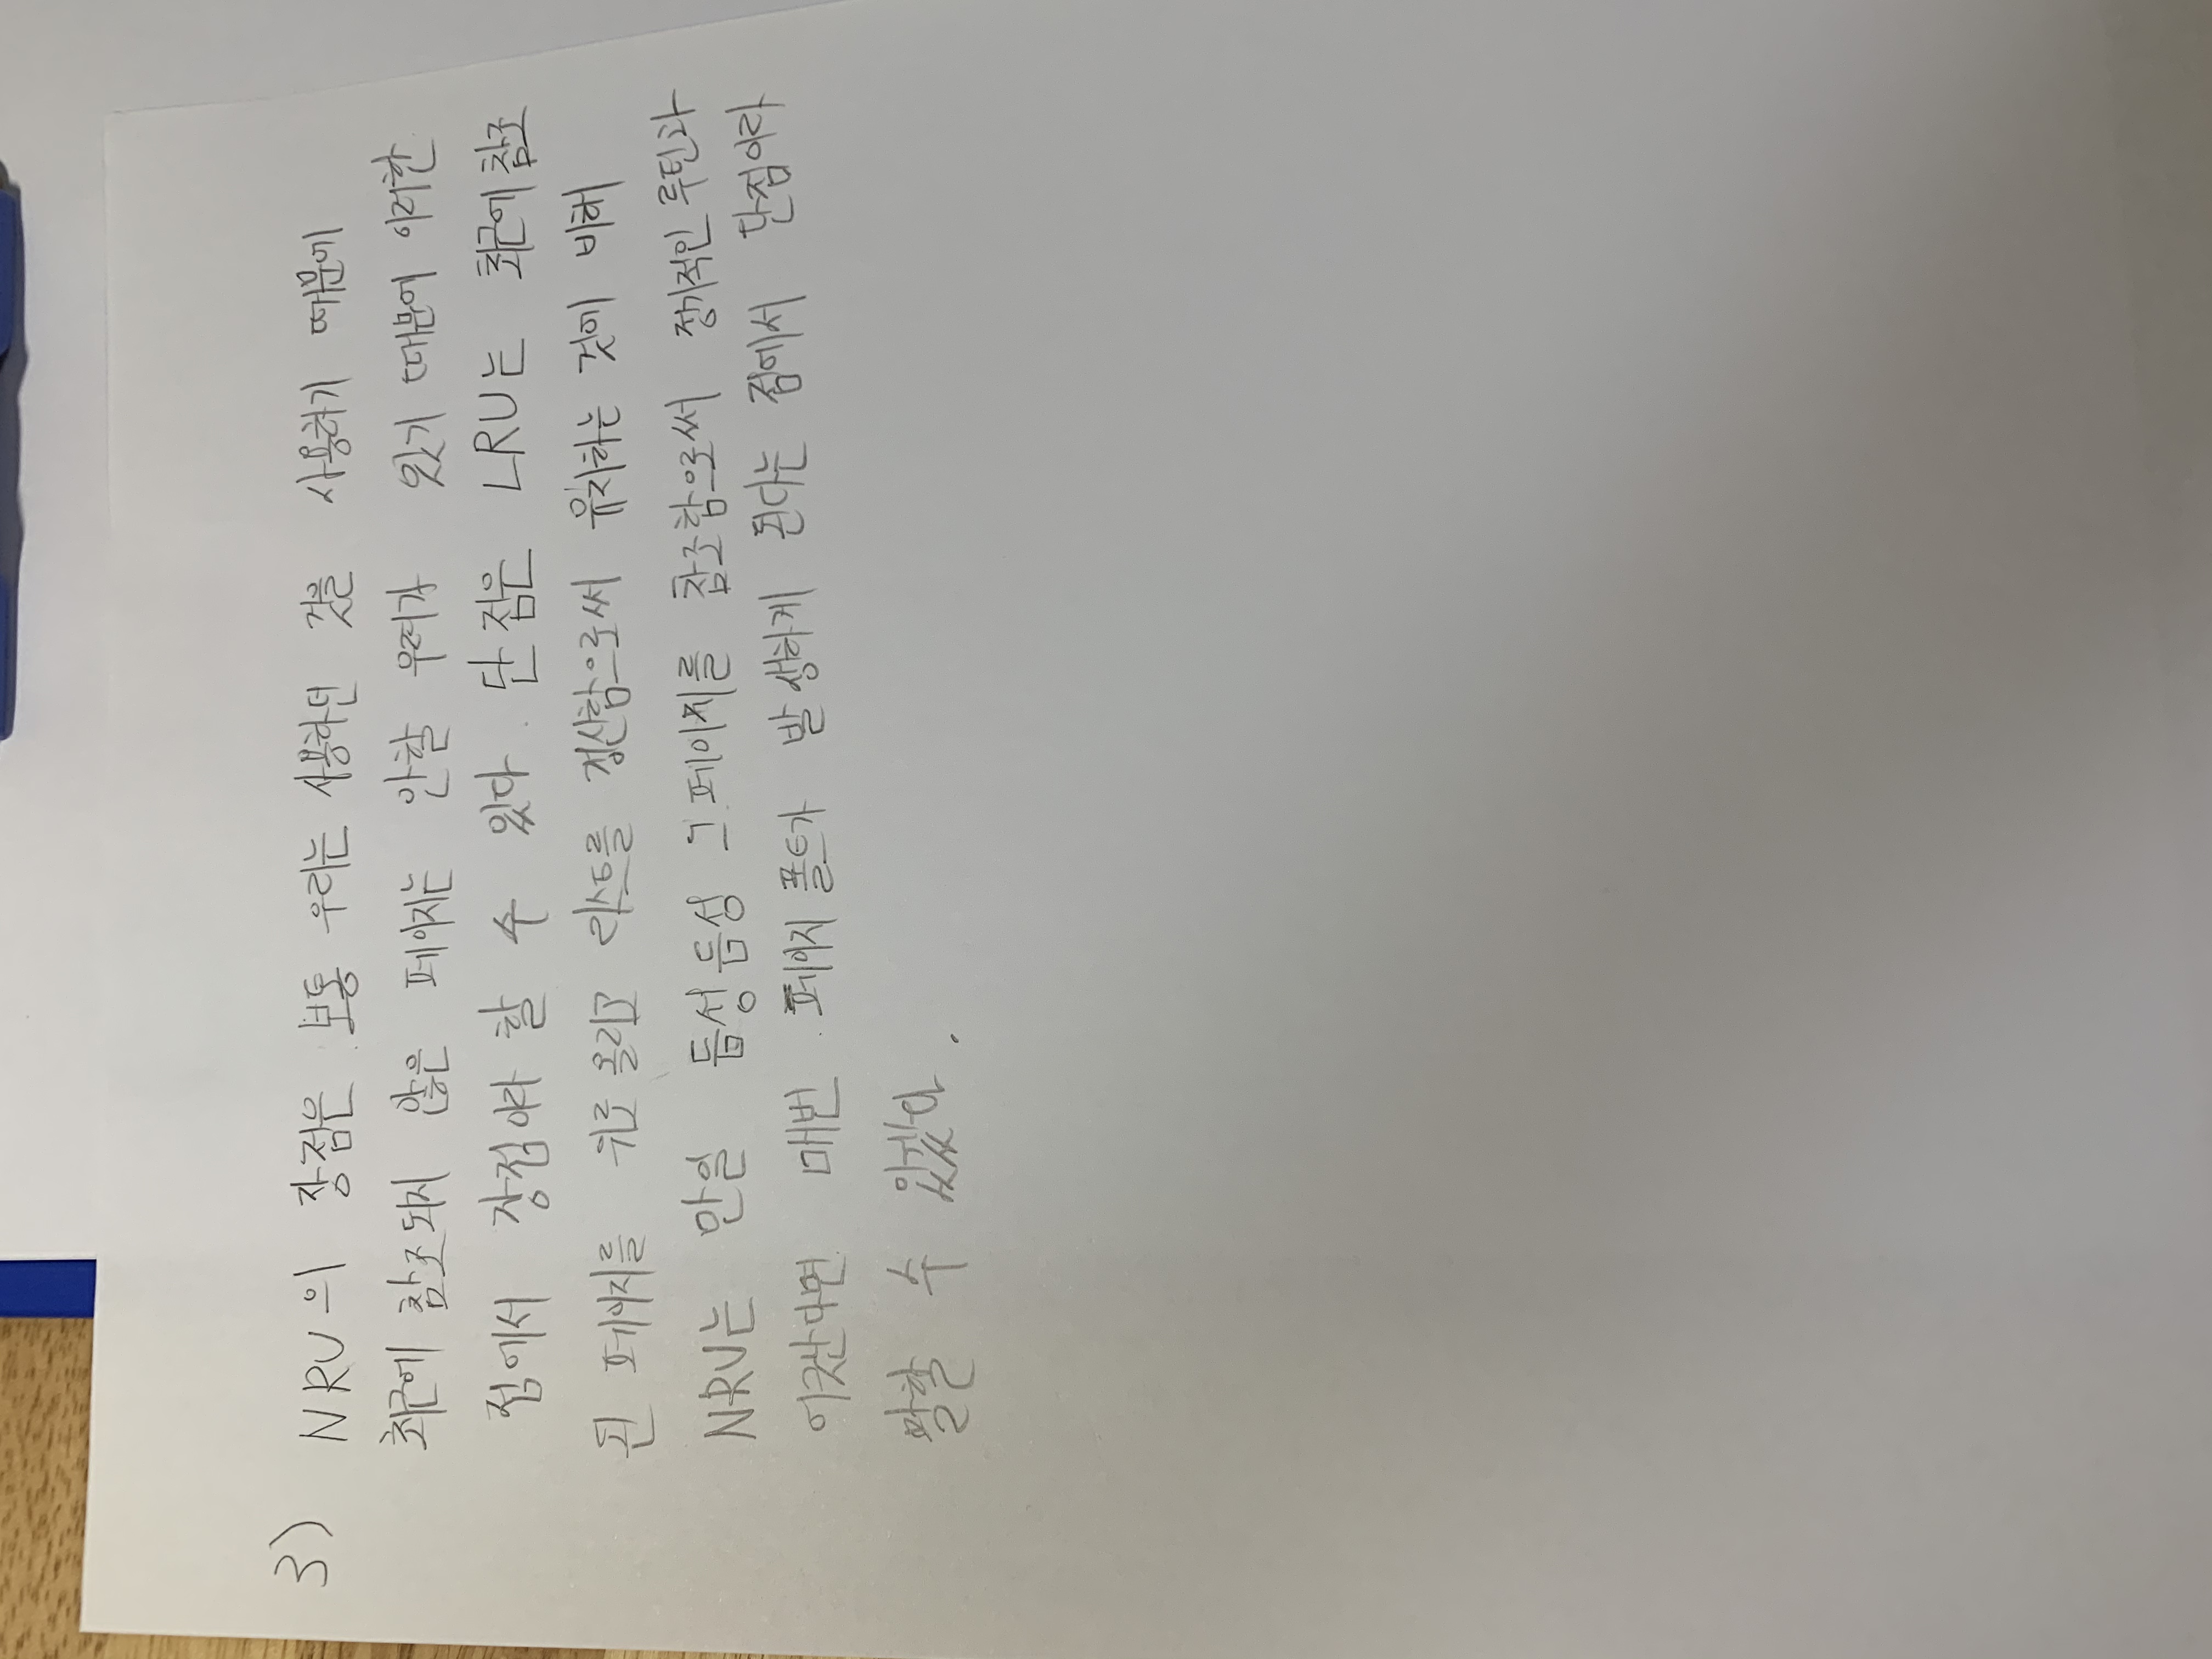 3) NRU의 장점은 보통 우리는 사용하던 것을 사용하기 때문에
최근에 참조되지 않은 페이지는 안할 우려가 있기 때문에 이러한
점에서 장점이라 할 수 있다. 단점은 LRU는 최근에 참조
된 페이지를 위로 올리고 리스트를 갱신함으로써 유지하는 것에 비해
NRU는 만일 듬성듬성 그 페이지를 참조함으로써 정기적인 루틴과
어긋난다면 매번 페이지 폴트가 발생하게 된다는 점에서 단점이라
말할 수 있겠다.